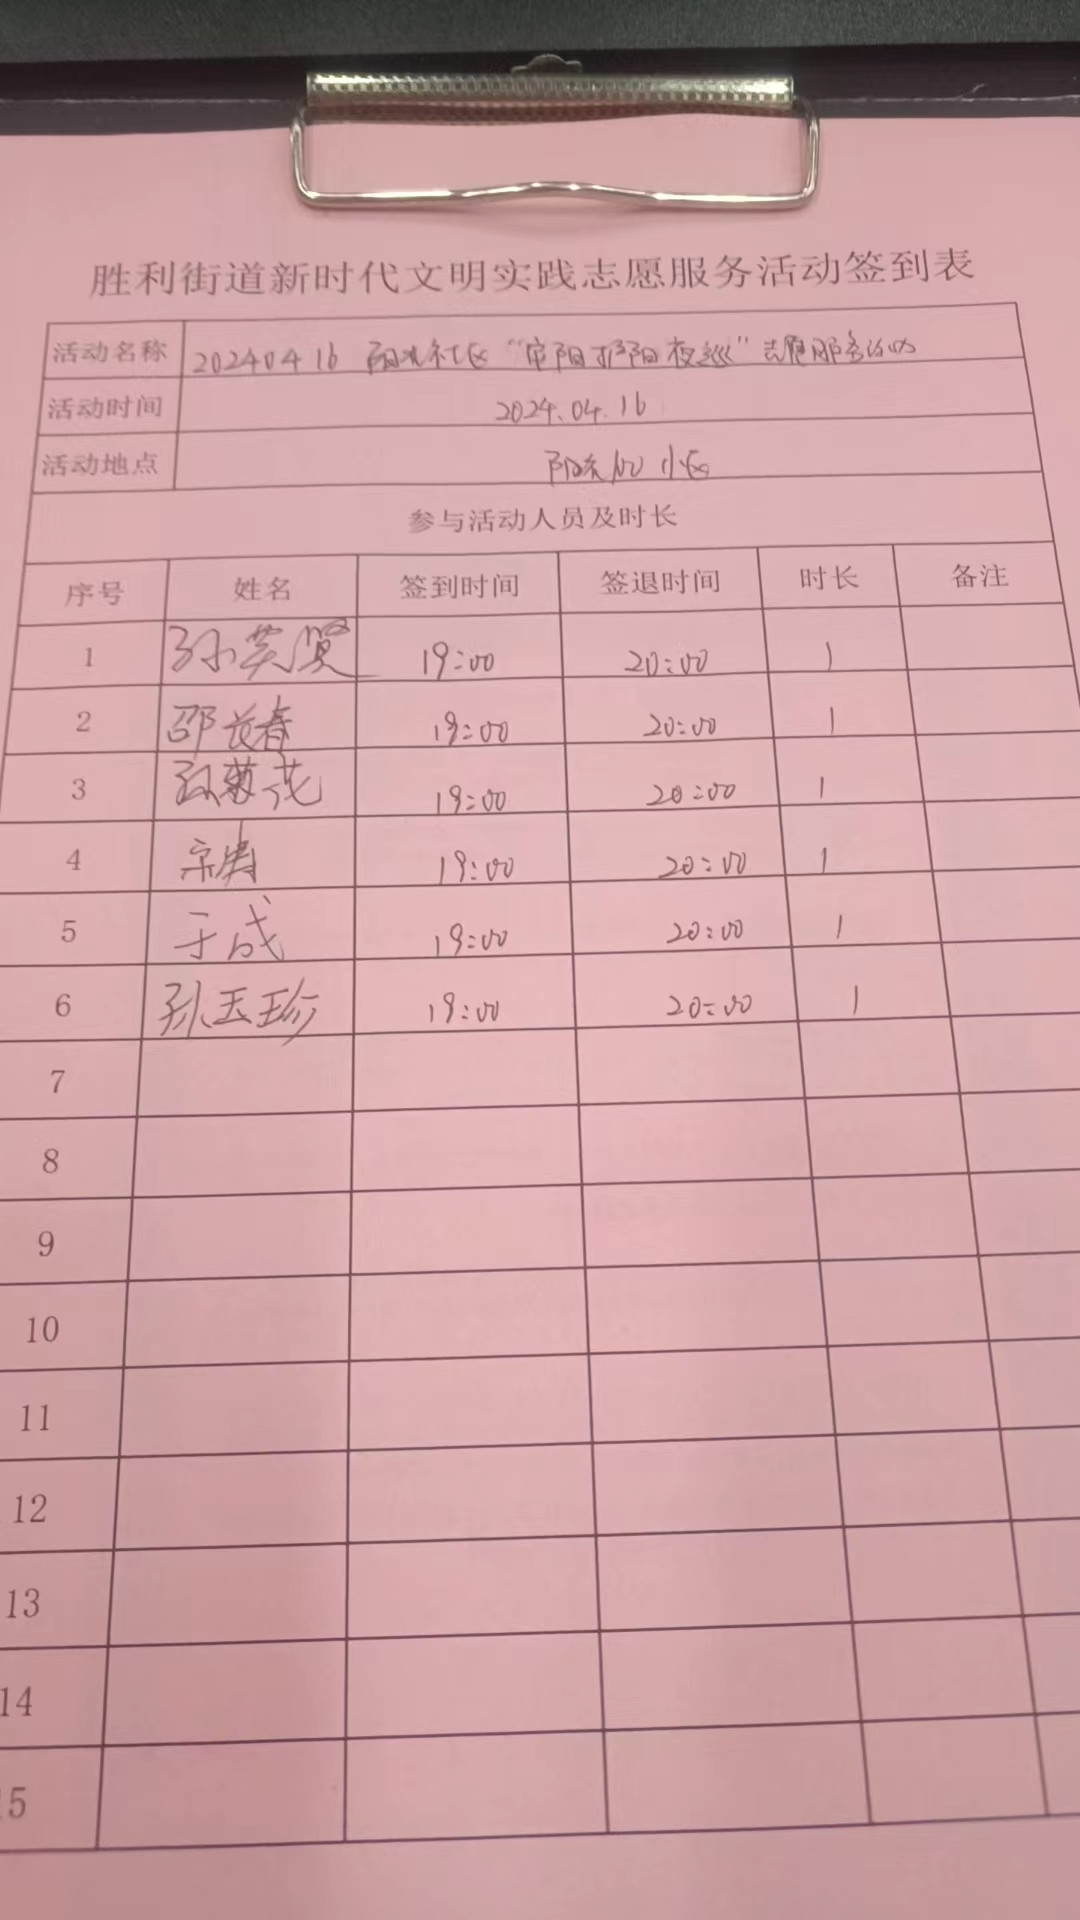 胜利街道新时代文明实践志愿服务活动签到表
活动名称 20240416 阳光社区“ 阳 阳夜巡”志愿服务活动
活动时间 2024.04.16
活动地点 阳光100小区
参与活动人员及时长
序号 姓名 签到时间 签退时间 时长 备注
1 孙英贤 19:00 20:00 1
2 邵长春 19:00 20:00 1
3 孙菊花 19:00 20:00 1
4 宋 19:00 20:00 1
5 于成 19:00 20:00 1
6 孙玉珍 19:00 20:00 1
7
8
9
10
11
12
13
14
15